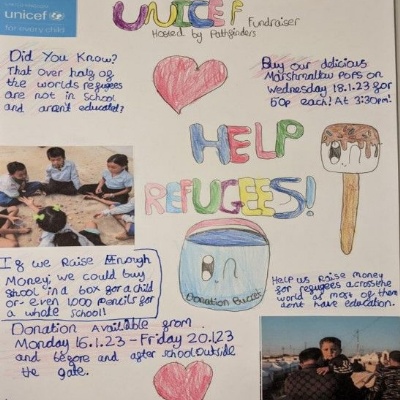 unicef
for every child
UNICEF Fundraiser
Hosted by Pathfinders
Did You Know?
That over half of
the worlds refugees
are not in school
and arent educated?
Buy our delicious
Marshmallow Pops on
Wednesday 18.1.23 for
50p each! At 3:30pm!
HELP
REFUGEES!
If we Raise Enough
Money, we could buy
School in a box for a child
or even 1000 pencils for
a whole school!
Donation Bucket
Help us raise money
for refugees across the
world as most of them
dont have education.
Donation Available from
Monday 16.1.23 - Friday 20.1.23
and before and after school outside
the gate.